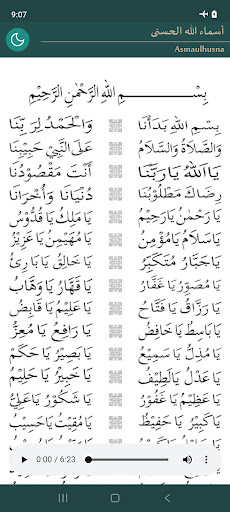 9:07
أسماء الله الحسنى
Asmaulhusna
بِسْــــــــمِ اللهِ الرَّحْمٰنِ الرَّحِيْمِ
بِسْمِ اللهِ بَدَأْنَا وَالْحَمْدُ لِرَبِّنَا
وَالصَّلَاةُ وَالسَّلَامُ عَلَى النَّبِيِّ حَبِيْبِنَا
يَا اَللهُ يَا رَبَّنَا أَنْتَ مَقْصُوْدُنَا
رِضَاكَ مَطْلُوْبُنَا دُنْيَانَا وَأُخْرَانَا
يَا رَحْمٰنُ يَا رَحِيْمُ يَا مَلِكُ يَا قُدُّوْسُ
يَا سَلَامُ يَا مُؤْمِنُ يَا مُهَيْمِنُ يَا عَزِيْزُ
يَا جَبَّارُ مُتَكَبِّرُ يَا خَالِقُ يَا بَارِئُ
يَا مُصَوِّرُ يَا غَفَّارُ يَا قَهَّارُ يَا وَهَّابُ
يَا رَزَّاقُ يَا فَتَّاحُ يَا عَلِيْمُ يَا قَابِضُ
يَا بَاسِطُ يَا خَافِضُ يَا رَافِعُ يَا مُعِزُّ
يَا مُذِلُّ يَا سَمِيْعُ يَا بَصِيْرُ يَا حَكَمُ
يَا عَدْلُ يَا لَطِيْفُ يَا خَبِيْرُ يَا حَلِيْمُ
يَا عَظِيْمُ يَا غَفُوْرُ يَا شَكُوْرُ يَا عَلِيُّ
يَا كَبِيْرُ يَا حَفِيْظُ يَا مُقِيْتُ يَا حَسِيْبُ
0:00 / 6:23